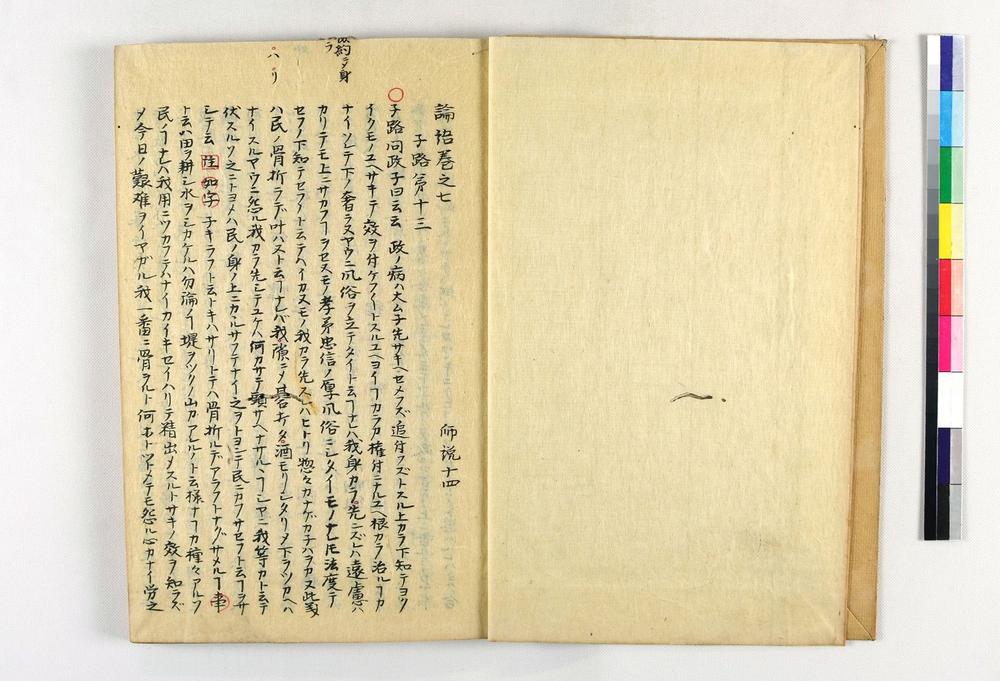 論語巻之七
師説十四
子路第十三
子路問政子曰云云 政ノ病ハ大ム子先サキヘセメフズ追付フズトスル上カラ下知テヨウ
イクモノユヘサキテ效ヲ付ケフイートスルユヘヨイフカラカ権付ニナルユヘ根カラ治ルフカ
ナイソレテ下ノ奢ラスヤウニ風俗ヲ立テタイト云フナレハ我身カラ先ニズレハ遠慮ハ
カリテモ上ニサカフフヲセスモノ孝弟忠信ノ厚風俗ニシタイモノナレ𪜈法度テ
セフノ下知テセフイト云テハイカヌモノ我カラ先スレハヒトリ惣々カナケカチハヲカヌ此
ハ民ノ骨折ラテ叶ハスト云フナレバ我隙ニメ碁打タ酒モリシタリメ下ラツカヘハ
ナイスルヤウニ怨ル我カラ先シテユケハ何カサテ頭サヘナサルヽフシヤニ我等カト云テ
伏スルソ之ニトヨメハ民ノ身ノ上ニカルサフテナイ之ヲトヨンテ民ニカフサセフト云フヲサ
シテ云 如字 子キラフト云トキハサリトテハ骨折ルデアラフトナグサメルフ
ト云ハ田ヲ耕シ水ヲシカケルハ勿論ノフ堤ヲツクノ山カアレルノト云様ナフカ種々アルフ
民ノフナレハ我用ニツカフテハナイカイキセイハリテ精出メスルトサキノ效ヲ知ラズ
メ今日ノ艱難ヲイヤガル我一番ニ骨ヲルト何ホトツトメテモ怨ル心カナイ労之
約メ身
ラ
ハリ